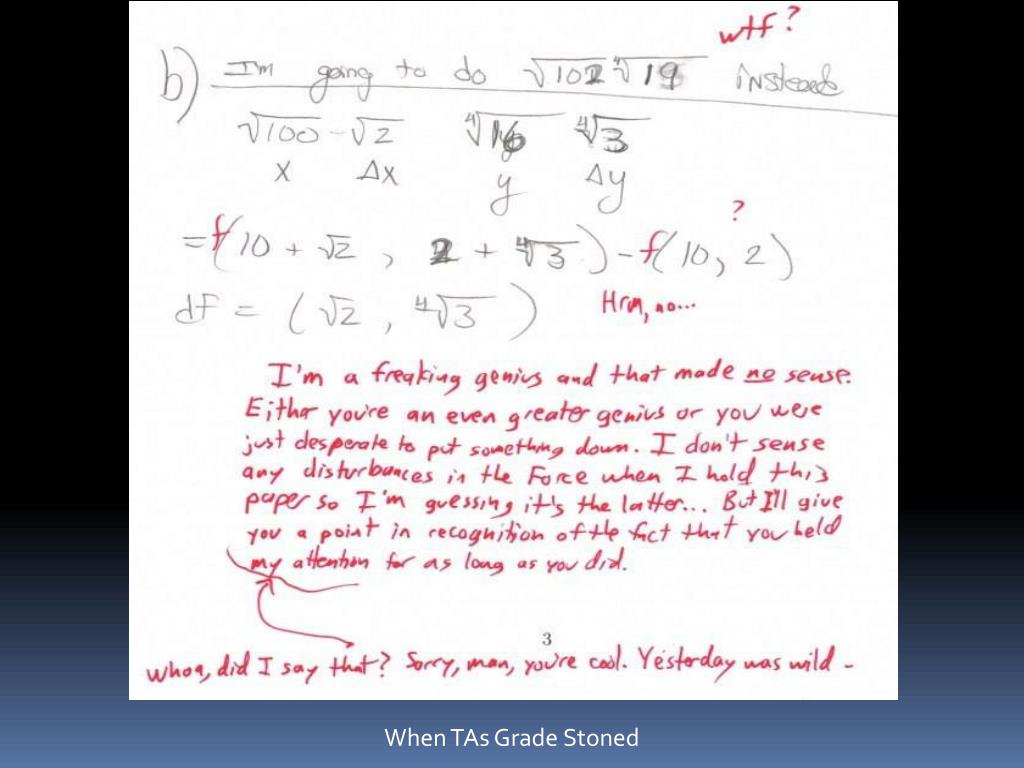 wtf?
b) I'm going to do √102 ∜19 instead
√100 - √2 ∜16 ∜3
x Δx y Δy
?
= f(10 + √2, 2 + ∜3) - f(10, 2)
df = (√2, ∜3) Hrm, no...
I'm a freaking genius and that made no sense.
Either you're an even greater genius or you were
just desperate to put something down. I don't sense
any disturbances in the Force when I hold this
paper so I'm guessing it's the latter... But I'll give
you a point in recognition of the fact that you held
my attention for as long as you did.
3
whoa, did I say that? Sorry, man, you're cool. Yesterday was wild -
When TAs Grade Stoned